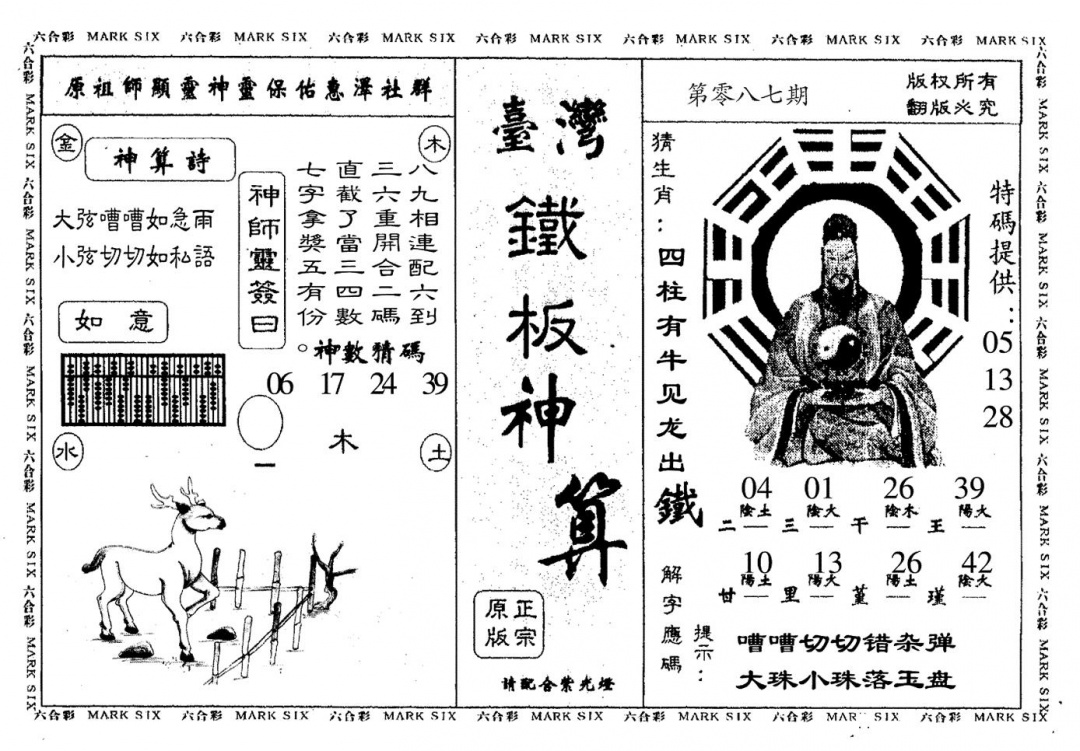 六合彩 MARK SIX 六合彩 MARK SIX 六合彩 MARK SIX 六合彩 MARK SIX 六合彩 MARK SIX 六合彩 MARK SIX 六合彩 MARK SIX
六合彩 MARK SIX 六合彩 MARK SIX 六合彩 MARK SIX 六合彩 MARK SIX 六合彩 MARK SIX
原祖師顯靈神靈保佑惠澤社群
金
木
神算詩
大弦嘈嘈如急雨
小弦切切如私語
如意
神師靈簽曰
八九相連配六到
三六重開合二碼
直截了當三四數
七字拿獎五有份。
神數猜碼
06 17 24 39
木
一
水
土
臺灣
鐵板神算
正宗
原版
請配合紫光燈
第零八七期
版权所有
翻版必究
猜生肖：四柱有牛见龙出鐵
特碼提供：
05
13
28
04 01 26 39
陰土 陰火 陰木 陽火
二一 三一 干一 王一
10 13 26 42
陽土 陽火 陽土 陰火
甘一 里一 堇一 瑾一
解字應碼
提示：
嘈嘈切切错杂弹
大珠小珠落玉盘
六合彩 MARK SIX 六合彩 MARK SIX 六合彩 MARK SIX 六合彩 MARK SIX 六合彩 MARK SIX
六合彩 MARK SIX 六合彩 MARK SIX 六合彩 MARK SIX 六合彩 MARK SIX 六合彩 MARK SIX 六合彩 MARK SIX 六合彩 MARK SIX